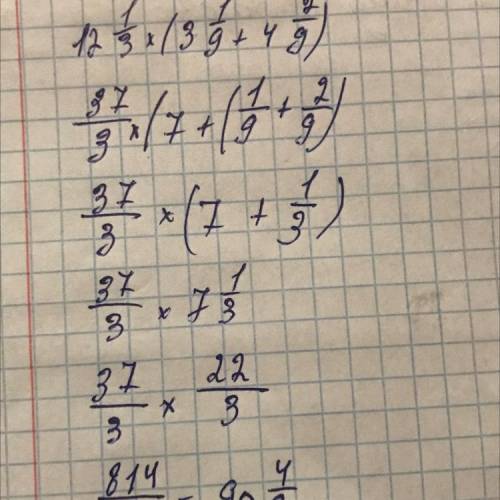 12 1/3 × (3 1/9 + 4 2/9)
37/3 × (7 + (1/9 + 2/9)
37/3 × (7 + 1/3)
37/3 × 7 1/3
37/3 × 22/3
814 = 90 4